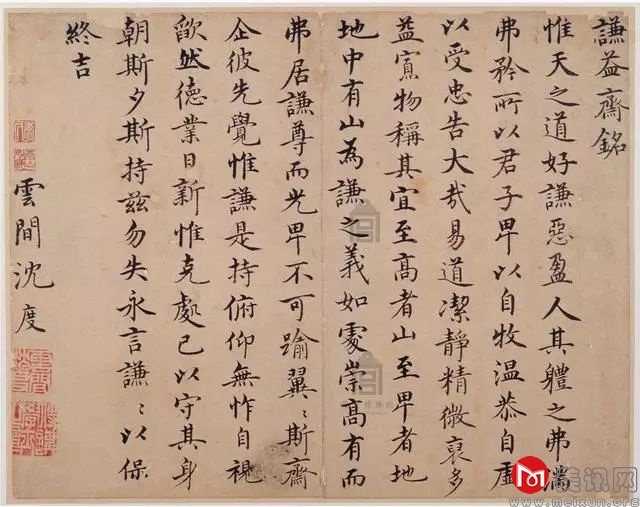 謙益齋銘
惟天之道好謙惡盈人其體之弗滿
弗矜所以君子卑以自牧溫恭自虛
以受忠告大哉易道潔靜精微裒多
益寡物稱其宜至高者山至卑者地
地中有山為謙之義如處崇高有而
弗居謙尊而光卑不可踰翼〻斯齋
企彼先覺惟謙是持俯仰無怍自視
欿然德業日新惟克處己以守其身
朝斯夕斯持茲勿失永言謙〻以保
終吉
雲間沈度
美讯网
www.meixun.org